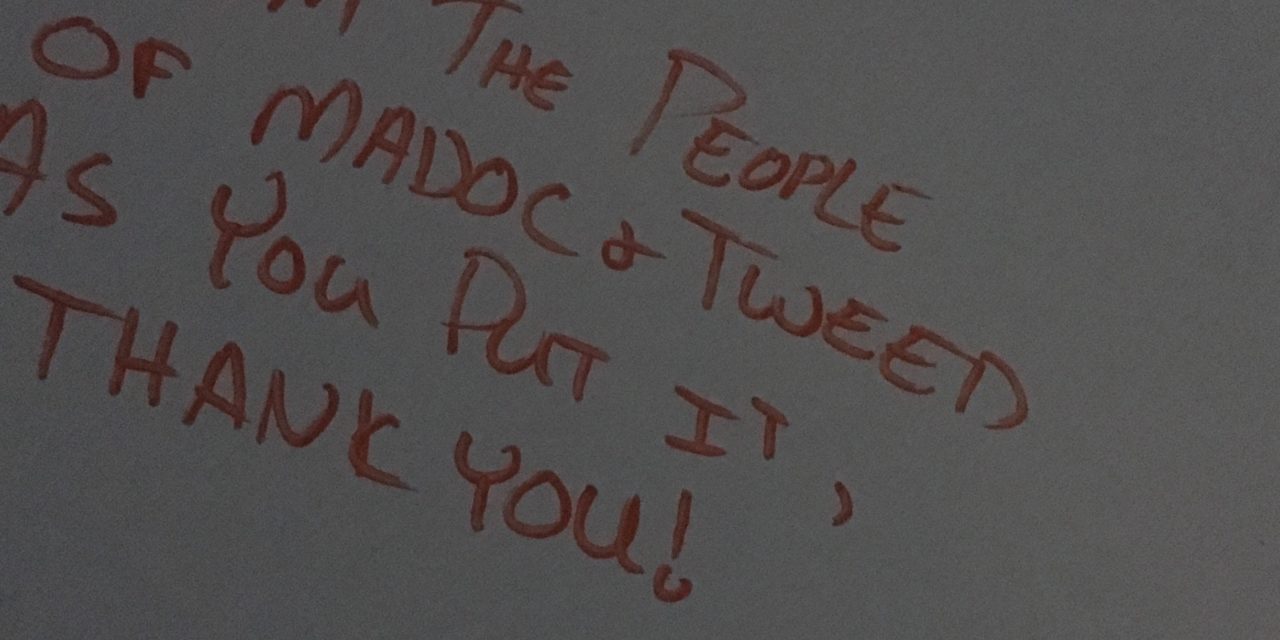 THE PEOPLE
OF MADOC & TWEED
AS YOU PUT IT,
THANK YOU!